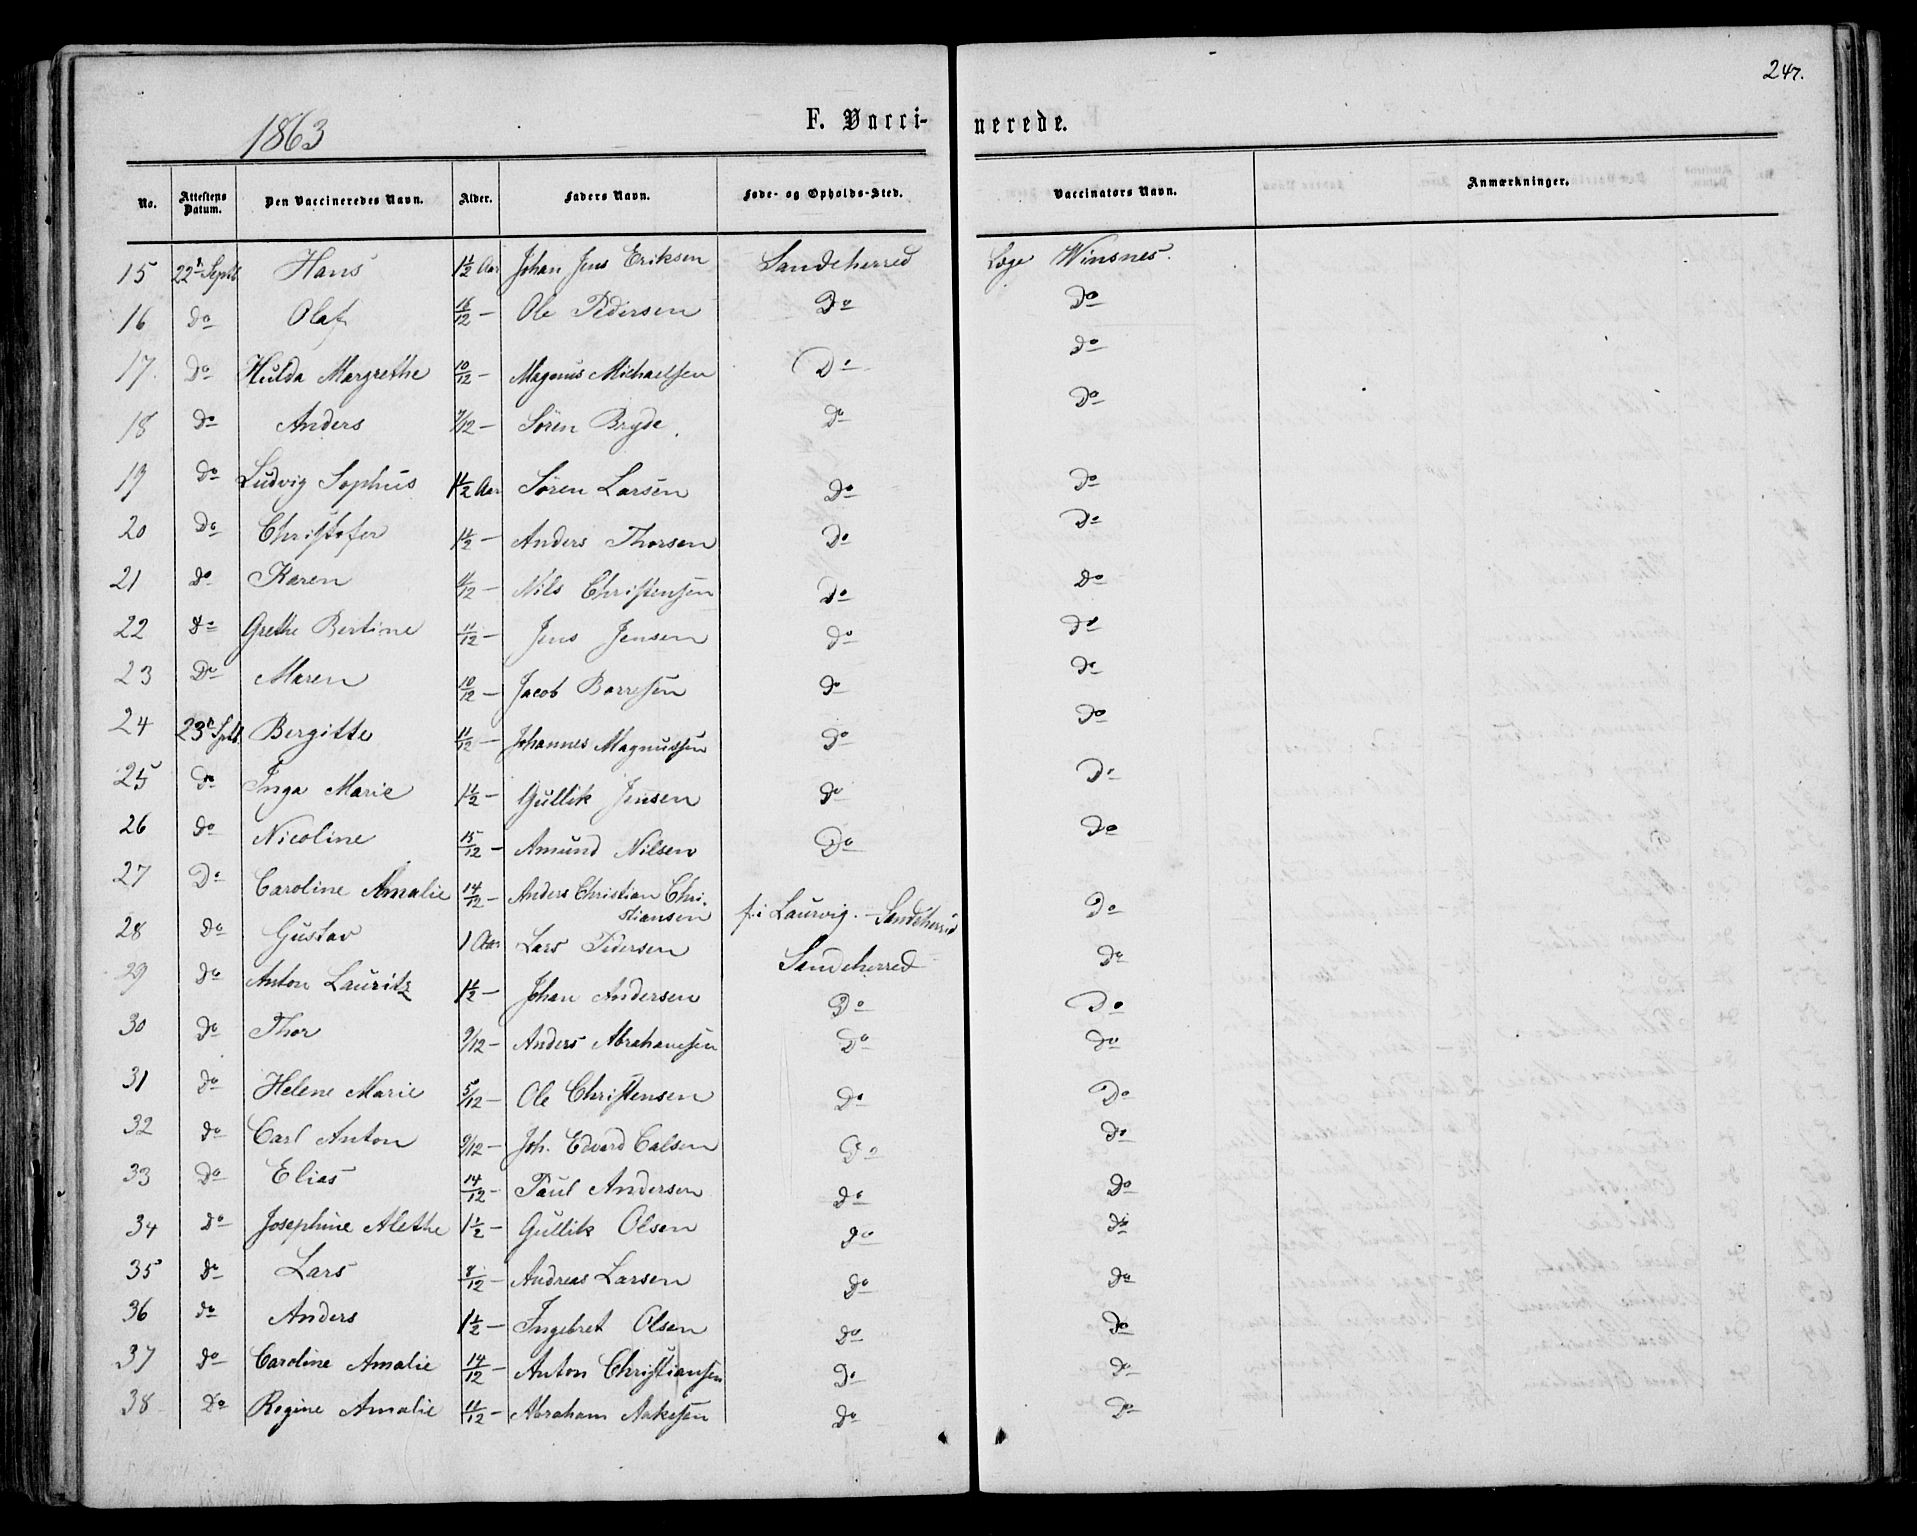 247.
1863 F. Vacci- nerede.
No. Attestens Datum. Den Vaccineredes Navn. Alder. Faders Navn. Føde- og Opholds-Sted. Vaccinators Navn. Anmærkninger.
15 22n Septb Hans 1 1/2 Aar Johan Jens Eriksen Sandeherred Læge Winsnes.
16 do Olaf 18/12 - Ole Pedersen Do Do
17. Do Hulda Margrethe 10/12 - Magnus Michaelsen Do do
18 do Anders 7/12 - Søren Bryde. do Do
19 do Ludvig Sophus 1 1/2 Aar Søren Larsen Do Do
20 Do Christofer 1 1/2 - Anders Thorsen Do Do
21 do Karen 11/12 - Nils Christensen Do do
22 do Grethe Bertine 11/12 - Jens Jensen do do
23 Do Maren 10/12 - Jacob Borresen do do
24 23n Sptb. Bergitte 11/12 - Johannes Magnussen do Do
25 Do Inga Marie 1 1/2 - Gullik Jensen do Do
26 do Nicoline 15/12 - Amund Nilsen Do do
27 Do Caroline Amalie 14/12 - Anders Christian Chri-
stiansen f. i Laurvig. - Sandeherred Do
28 do Gustav 1 Aar Lars Pedersen Sandeherred do
29 do Anton Lauritz 1 1/2 - Johan Andersen Do Do
30 do Thor 9/12 - Anders Abrahamsen Do do
31 do Helene Marie 5/12 - Ole Christensen Do Do
32 do Carl Anton 9/12 - Joh. Edvard Calsen Do do
33 Do Elias 14/12 - Paul Andersen do Do
34 Do Josephine Alethe 1 1/2 - Gullik Olsen do do
35 do Lars 8/12 - Andreas Larsen do do
36 do Anders 1 1/2 - Ingebret Olsen do Do
37 do Caroline Amalie 14/12 - Anton Christiansen Do do
38 Do Regine Amalie 11/12 - Abraham Aakesen do Do